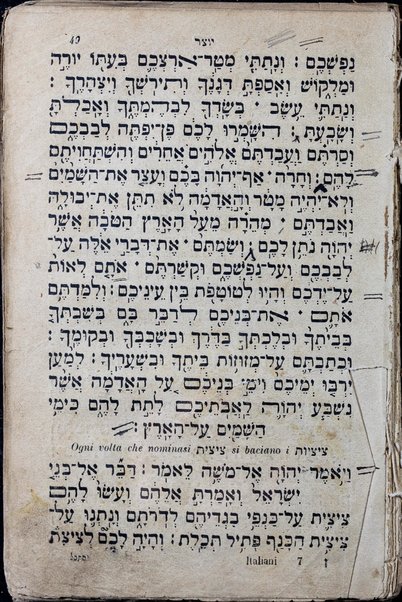 יוצר 49
נַפְשְׁכֶם׃ וְנָתַתִּי מְטַר־אַרְצְכֶם בְּעִתּוֹ יוֹרֶה
וּמַלְקוֹשׁ וְאָסַפְתָּ דְגָנֶךָ וְתִירֹשְׁךָ וְיִצְהָרֶךָ׃
וְנָתַתִּי עֵשֶׂב ׀ בְּשָׂדְךָ לִבְהֶמְתֶּךָ וְאָכַלְתָּ
וְשָׂבָעְתָּ׃ הִשָּׁמְרוּ לָכֶם פֶּן־יִפְתֶּה לְבַבְכֶם
וְסַרְתֶּם וַעֲבַדְתֶּם אֱלֹהִים אֲחֵרִים וְהִשְׁתַּחֲוִיתֶם
לָהֶם׃ וְחָרָה ׀ אַף־יְהוָה בָּכֶם וְעָצַר אֶת־הַשָּׁמַיִם
וְלֹא־יִהְיֶה מָטָר וְהָאֲדָמָה לֹא תִתֵּן אֶת־יְבוּלָהּ
וַאֲבַדְתֶּם ׀ מְהֵרָה מֵעַל הָאָרֶץ הַטֹּבָה אֲשֶׁר
יְהוָה נֹתֵן לָכֶם׃ וְשַׂמְתֶּם ׀ אֶת־דְּבָרַי אֵלֶּה עַל־
לְבַבְכֶם וְעַל־נַפְשְׁכֶם וּקְשַׁרְתֶּם ׀ אֹתָם לְאוֹת
עַל־יֶדְכֶם וְהָיוּ לְטוֹטָפֹת בֵּין עֵינֵיכֶם׃ וְלִמַּדְתֶּם
אֹתָם ׀ אֶת־בְּנֵיכֶם לְדַבֵּר בָּם בְּשִׁבְתְּךָ
בְּבֵיתֶךָ וּבְלֶכְתְּךָ בַדֶּרֶךְ וּבְשָׁכְבְּךָ וּבְקוּמֶךָ׃
וּכְתַבְתָּם עַל־מְזוּזוֹת בֵּיתֶךָ וּבִשְׁעָרֶיךָ׃ לְמַעַן
יִרְבּוּ יְמֵיכֶם וִימֵי בְנֵיכֶם עַל הָאֲדָמָה אֲשֶׁר
נִשְׁבַּע יְהוָה לַאֲבֹתֵיכֶם לָתֵת לָהֶם כִּימֵי
הַשָּׁמַיִם עַל־הָאָרֶץ׃
Ogni volta che nominasi ציצית si baciano i ציציות
וַיֹּאמֶר יְהוָה אֶל־מֹשֶׁה לֵּאמֹר׃ דַּבֵּר אֶל־בְּנֵי
יִשְׂרָאֵל וְאָמַרְתָּ אֲלֵהֶם וְעָשׂוּ לָהֶם
צִיצִית עַל־כַּנְפֵי בִגְדֵיהֶם לְדֹרֹתָם וְנָתְנוּ עַל־
צִיצִית הַכָּנָף פְּתִיל תְּכֵלֶת׃ וְהָיָה לָכֶם לְצִיצִת
Italiani 7 ז